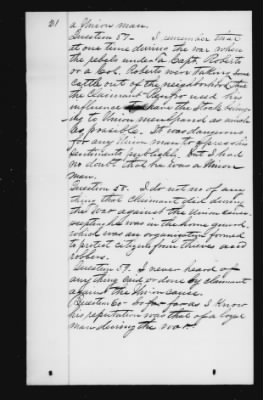 21
a Union man.
Question 57 – I remember that
at one time during the war when
the rebels under a Capt. Roberts
or a Col. Roberts were taking some
cattle out of the neighborhood, that
the Claimant used his
influence to have the stock belong-
ing to Union men spared as much
as possible. It was dangerous
for any Union man to express his
sentiments publicly, but I had
no doubt that he was a Union
man.
Question 58. I do not no of any
thing that Claimant did during
the war against the Union cause.
excepting he was in the home guard,
which was an organization formed
to protect citizens from thieves and
robbers.
Question 59. I never heard of
anything said or done by claimant
against the Union cause.
Question 60– So far as I know
his reputation was that of a loyal
man during the war.